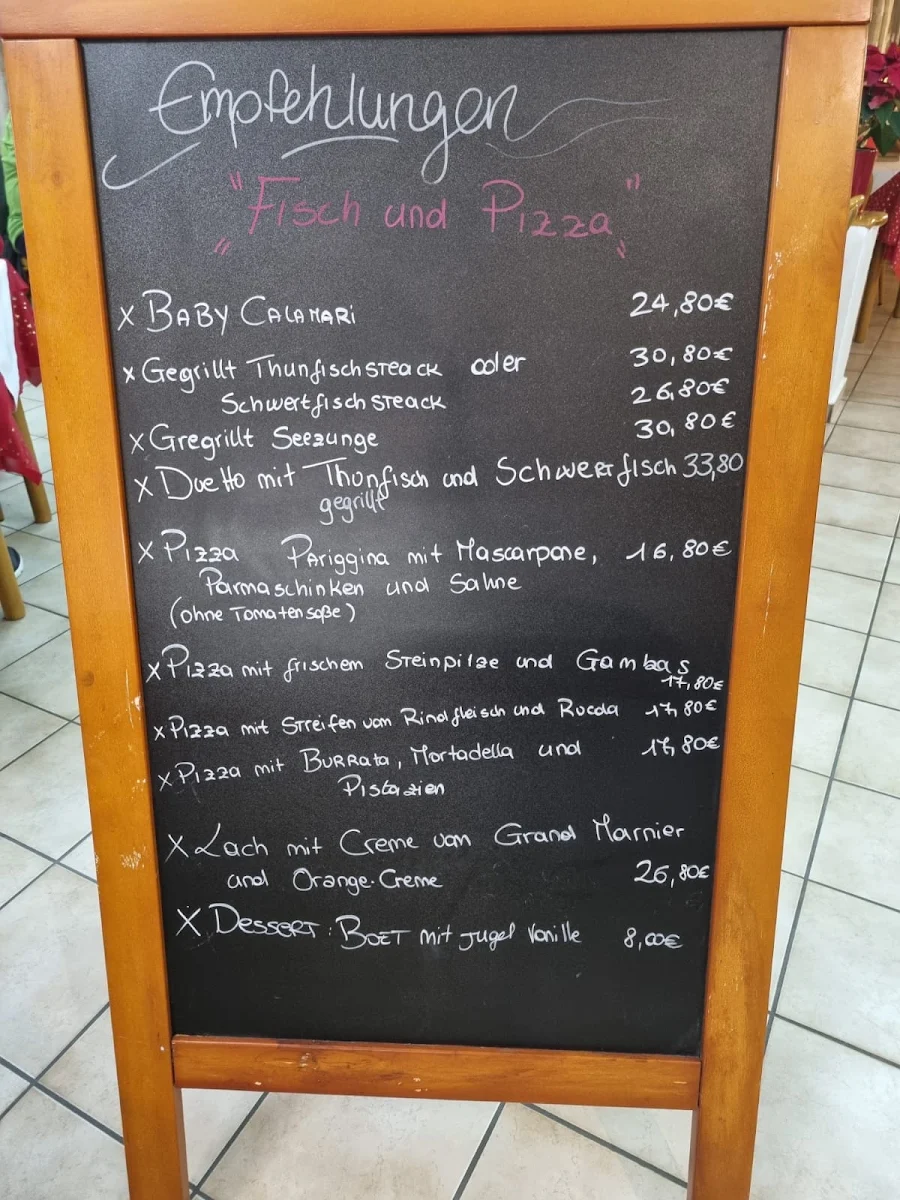 Empfehlungen
"Fisch und Pizza"
x BABY CALAMARi 24,80€
x Gegrillt Thunfischsteack oder 30,80€
Schwertfischsteack 26,80€
x Gregrillt Seezunge 30,80€
x Duetto mit Thunfisch und Schwertfisch 33,80
gegrillt
x Pizza Pariggina mit Mascarpone, 16,80€
Parmaschinken und Sahne
(ohne Tomatensoße)
x Pizza mit frischem Steinpilze und Gambas
17,80€
x Pizza mit Streifen vom Rindfleisch und Rucola 17,80€
x Pizza mit Burrata, Mortadella und 17,80€
Pistazien
x Lach mit Creme vom Grand Marnier
und Orange-Creme 26,80€
x Dessert: mit Vanille 8,00€